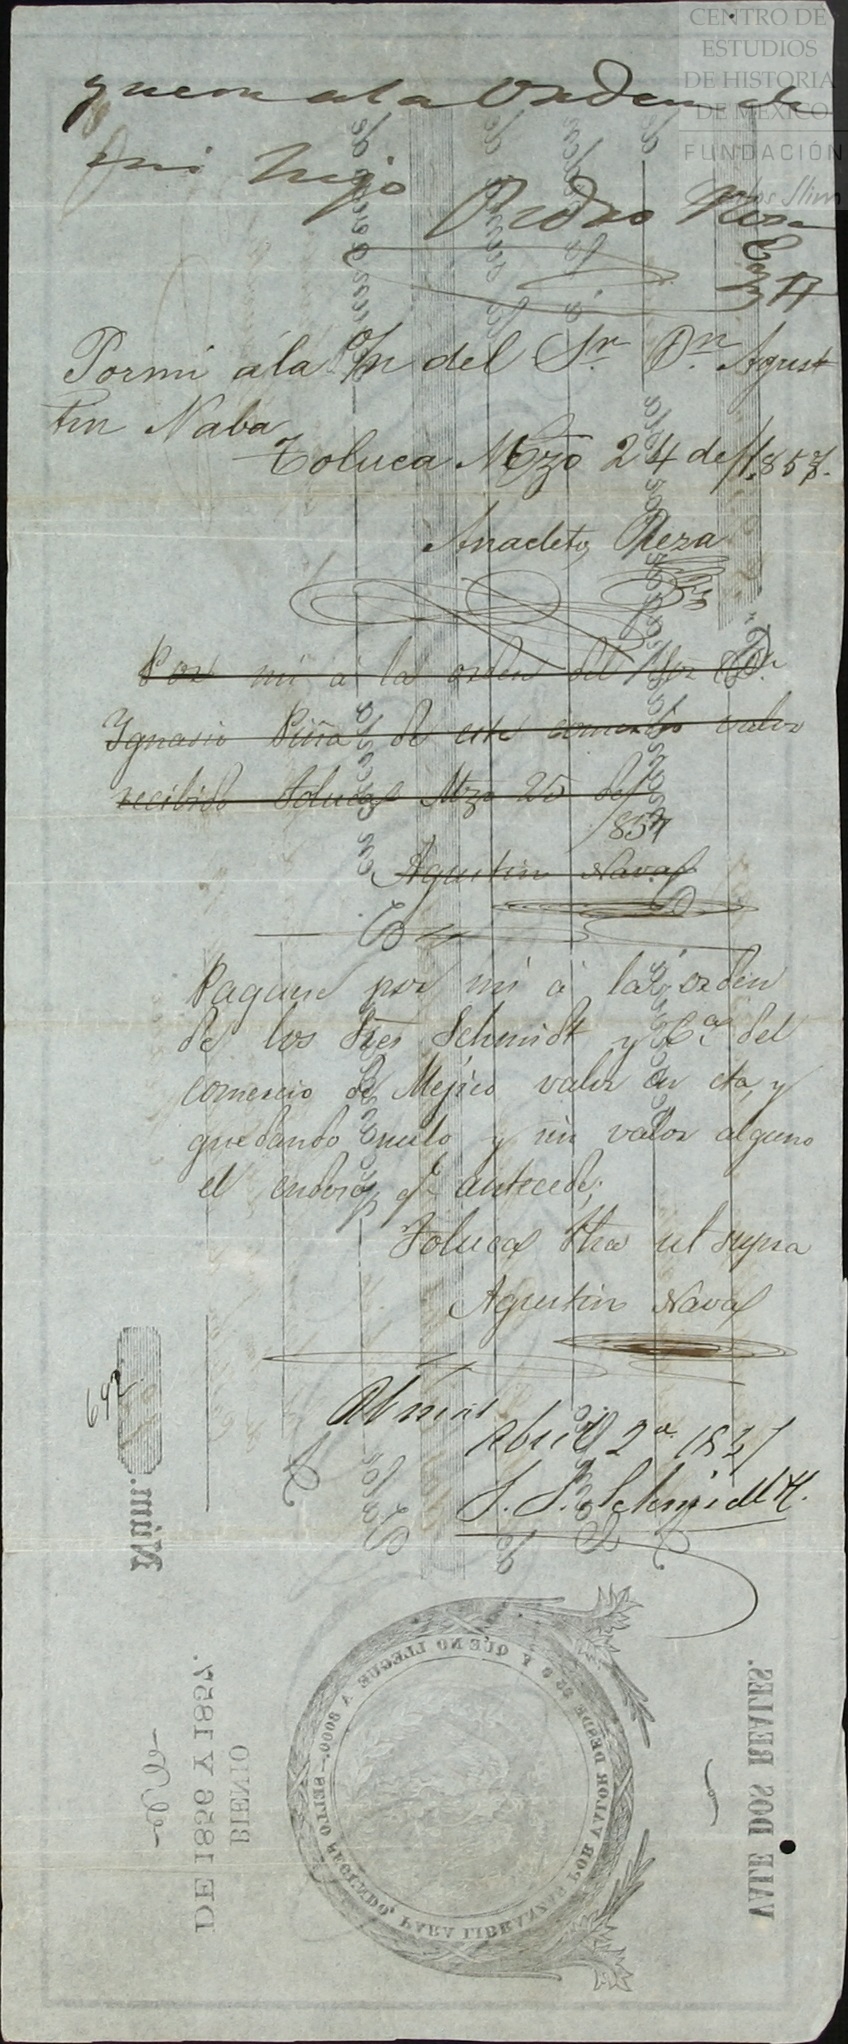 CENTRO DE
ESTUDIOS
DE HISTORIA
DE MÉXICO
FUNDACIÓN
Carlos Slim
a la Orden de
mi hijo
Pedro
Por mi á la O/n del Sr. Dn. Agust
tin Naba
Toluca Mzo 24 de /1857.
Anacleto Meza
Por mi á la orden del Sor Dn.
Ignacio Piña de este comercio valor
recibido Toluca Mzo 25 de
/857
Agustin Nava
Paguese por mi á la orden
de los Sres Schmidt y Ca. del
comercio de Mejico valor en cta, y
quedando nulo y sin valor alguno
el endoso qe. antecede;
Toluca fha ut supra
Agustin Nava
Abril 2 1857
Núm.
692
VALE DOS REALES.
BIENIO
DE 1856 Y 1857.
SELLO SEGUNDO, PARA LIBRANZAS POR VALOR DESDE Y QUE NO LLEGUE A